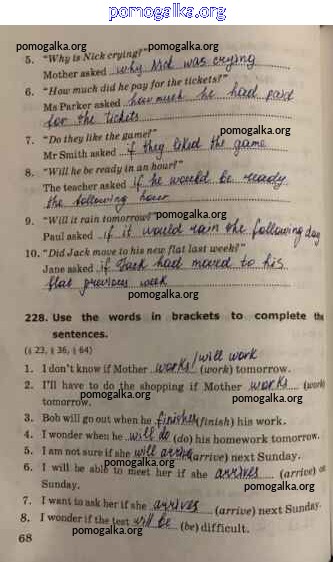 pomogalka.org
pomogalka.org pomogalka.org
5. "Why is Nick crying?"
Mother asked why Nick was crying
pomogalka.org
6. "How much did he pay for the tickets?"
Ms Parker asked how much he had paid
for the tickets
pomogalka.org
7. "Do they like the game?"
Mr Smith asked if they liked the game
pomogalka.org
8. "Will he be ready in an hour?"
The teacher asked if he would be ready
the following hour
pomogalka.org
9. "Will it rain tomorrow?"
Paul asked if it would rain the following day
pomogalka.org
10. "Did Jack move to his new flat last week?"
Jane asked if Jack had moved to his
flat previous week
pomogalka.org
228. Use the words in brackets to complete the
sentences.
(§ 23, § 36, § 64)
1. I don't know if Mother works/will work (work) tomorrow.
2. I'll have to do the shopping if Mother works (work)
tomorrow.
pomogalka.org
3. Bob will go out when he finishes (finish) his work.
4. I wonder when he will do (do) his homework tomorrow.
5. I am not sure if she will arrive (arrive) next Sunday.
6. I will be able to meet her if she arrives (arrive) on
Sunday.
pomogalka.org pomogalka.org
7. I want to ask her if she arrives (arrive) next Sunday.
8. I wonder if the test will be (be) difficult.
68
pomogalka.org